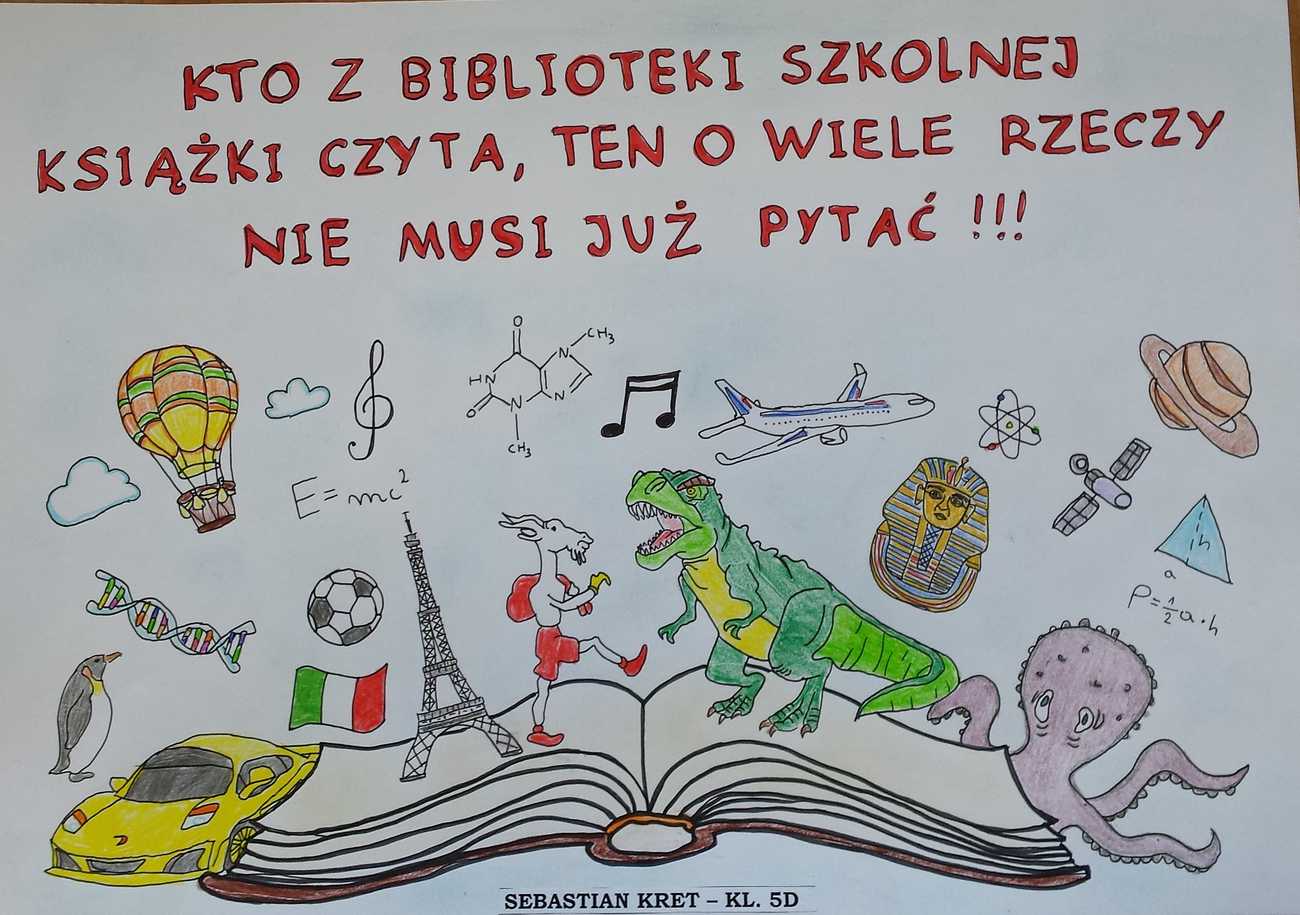 KTO Z BIBLIOTEKI SZKOLNEJ
KSIĄŻKI CZYTA, TEN O WIELE RZECZY
NIE MUSI JUŻ PYTAĆ !!!
O
CH3
N
HN
N
N
O
CH3
E=mc²
h
a
P=½a·h
SEBASTIAN KRET – KL. 5D